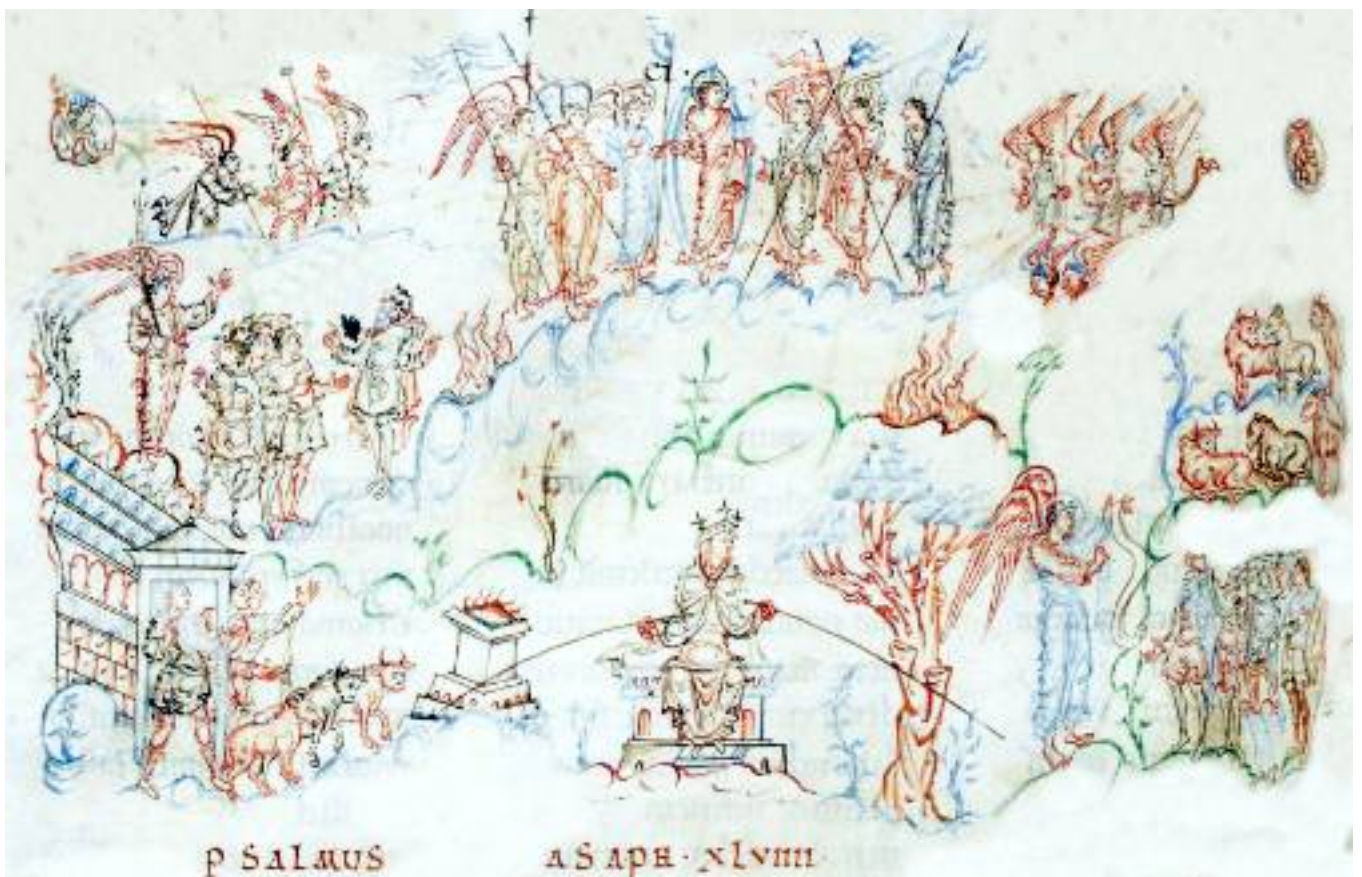 PSALMUS ASAPH · XLVIIII ·